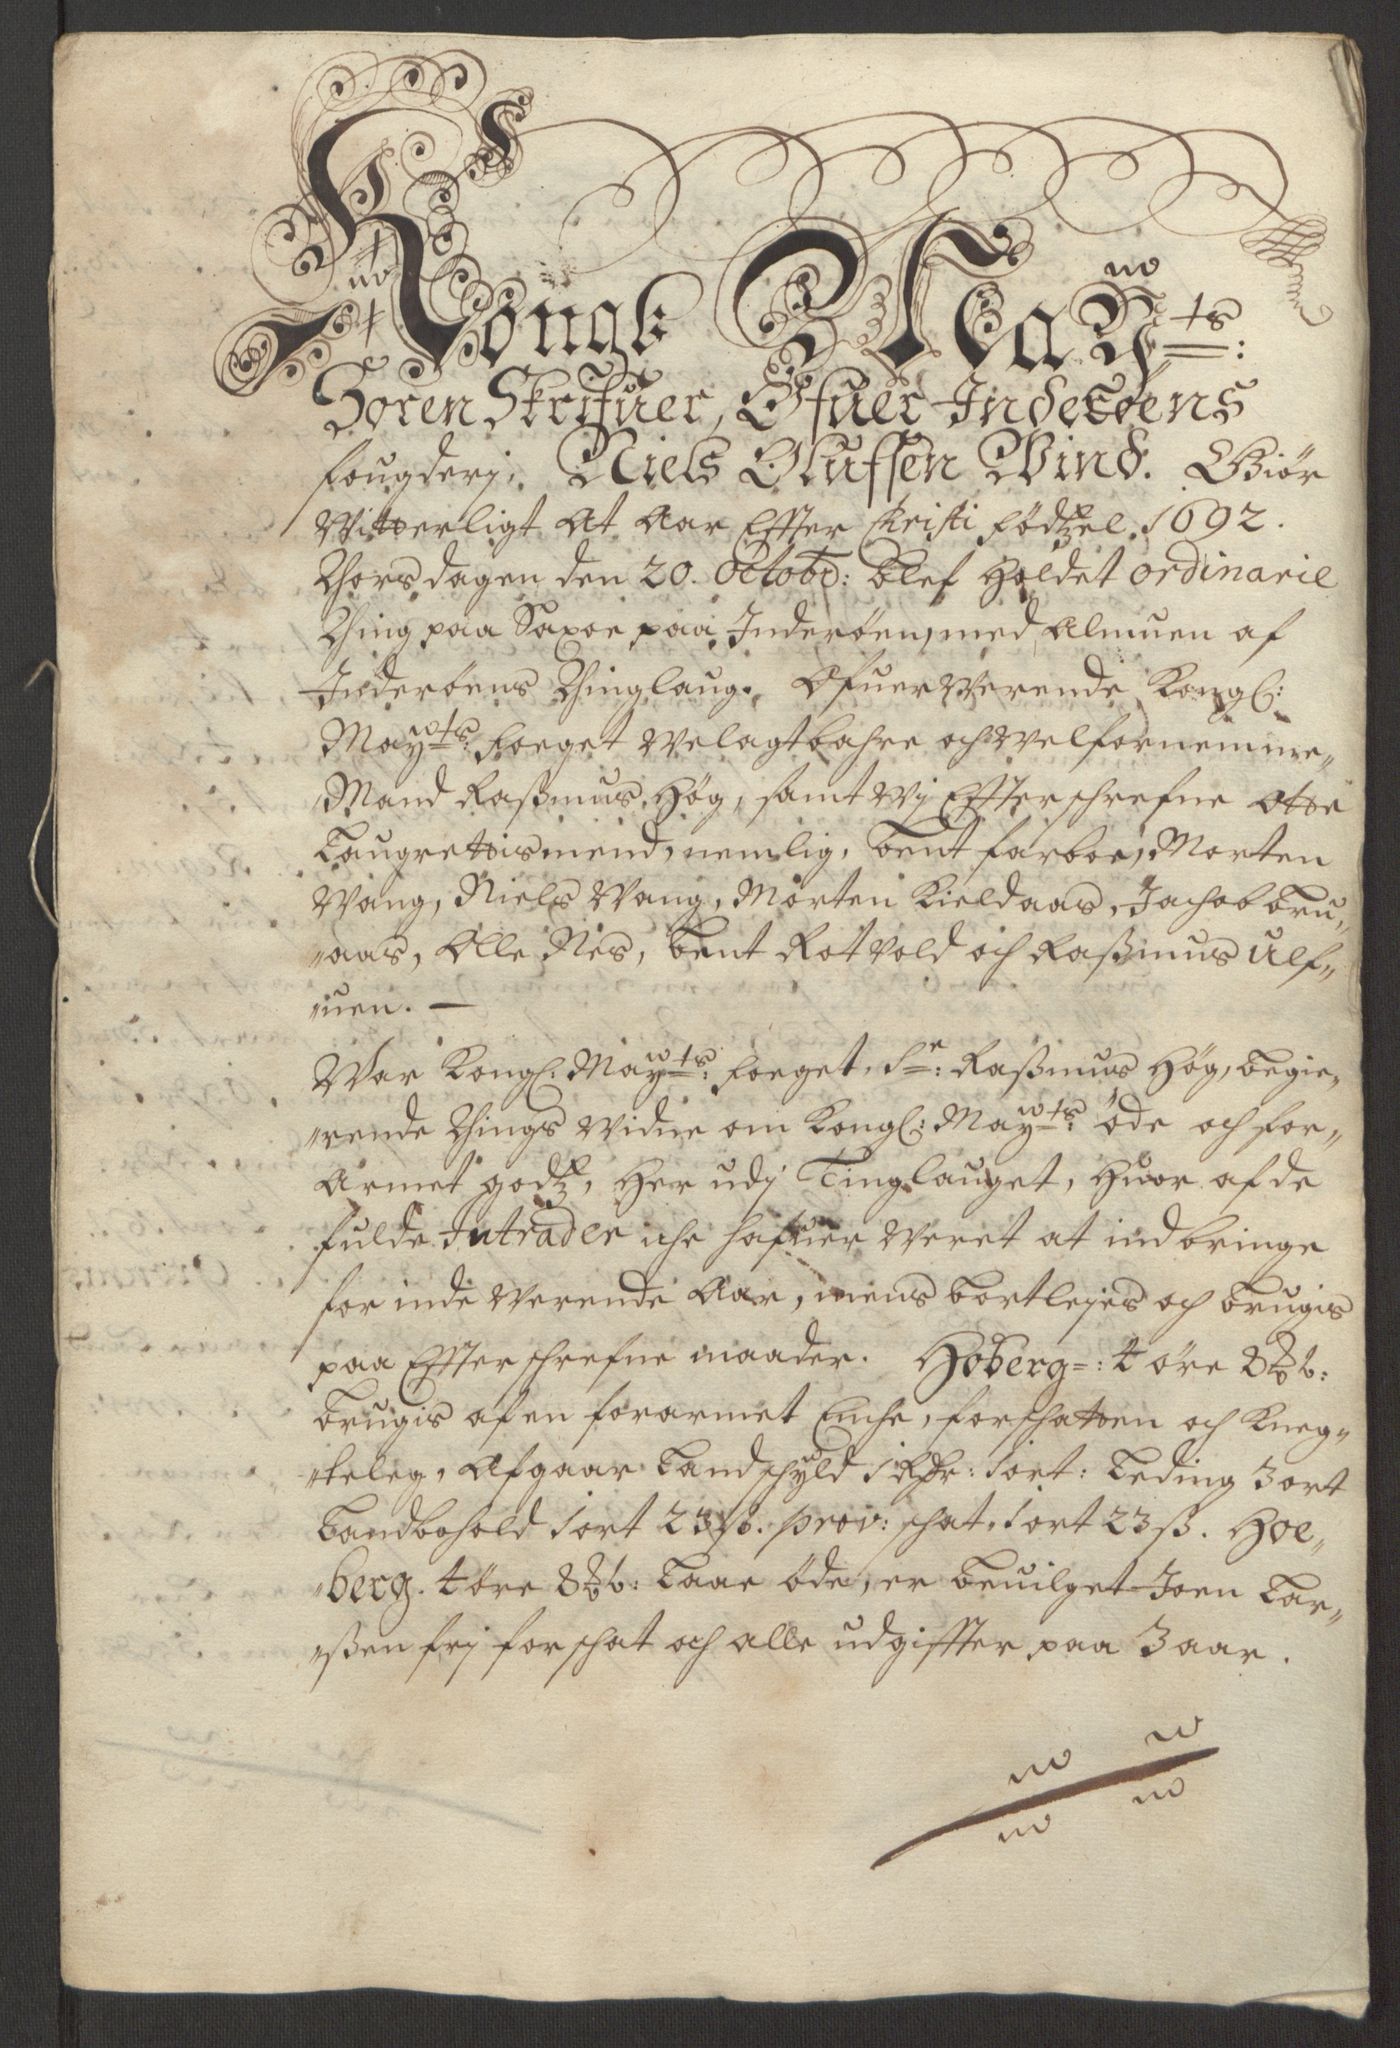 Kongl: May:ts:
Soren Skrifuer, Ofuer Inderøens
fougderj, Niels Olufsen Wind. Giør
Witterligt At Aar Effter Christi fødtzel 1692.
Thorsdagen den 20. Octobr: blef Holdet ordinarie
Thing paa Saxoe paa Inderøen, med Almuen af
Inderøens Thinglaug. Ofuer Werende Kongl:
May:ts: foeget Welagtbahre och Welfornemme
Mand Rassmus Høg, samt Wj Effterschrefne otte
Laugrettismend, nemlig, Bent farboe, Morten
Wang, Niels Wang, Morten Kieldaas, Jachob bru-
aas, Olle Nes, Bent Rotvold och Rassmus Ulf-
uen. —
War Kongl: May:ts: foeget, Sr: Rassmus Høg, begie-
rende Things Widne om Kongl: May:ts: øde och for-
Armet godtz, Her udj Tinglauget, Huor af de
fulde Intrader iche hafuer Weret at indbringe
for inde Werende Aar, mens bortlejes och brugis
paa Effterschrefne maader. Hoberg=: 4 øre 8 ₰:
brugis af en forarmet Enche, forschatten och Kneg-
teleg, Afgaar Landschyld 1 Rdr: 1 ort: Leding 3 ort
Landbohold 1 ort 23 ß. prov: schat. 1 ort 23 ß. Hoe-
berg. 4 øre 8 ₰: Laae øde, er beuilget Joen Lar-
ssen frj for schat och alle udgiffter paa 3 aar.